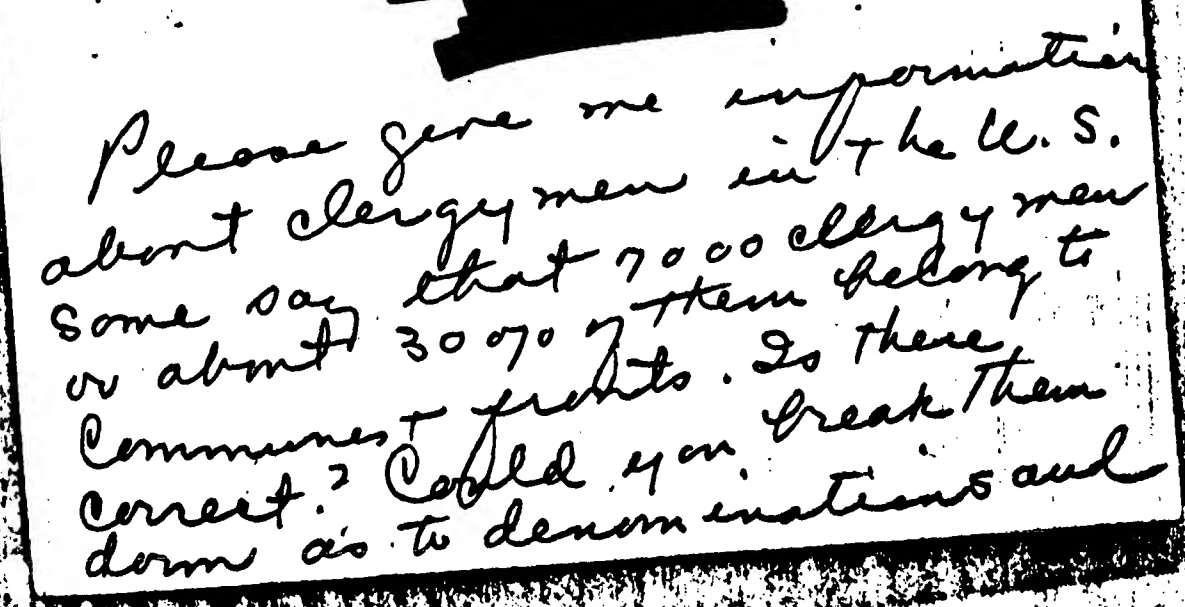 Please give me information
about clergymen in the U.S.
Some say that 7000 clergymen
or about 30% of them belong to
Communest fronts. Is there
correct? Could you break them
down as to denominations and